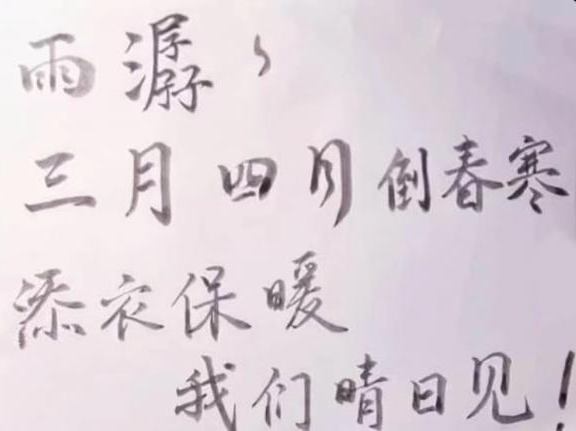 雨潺、
三月四月倒春寒
添衣保暖
我们晴日见！